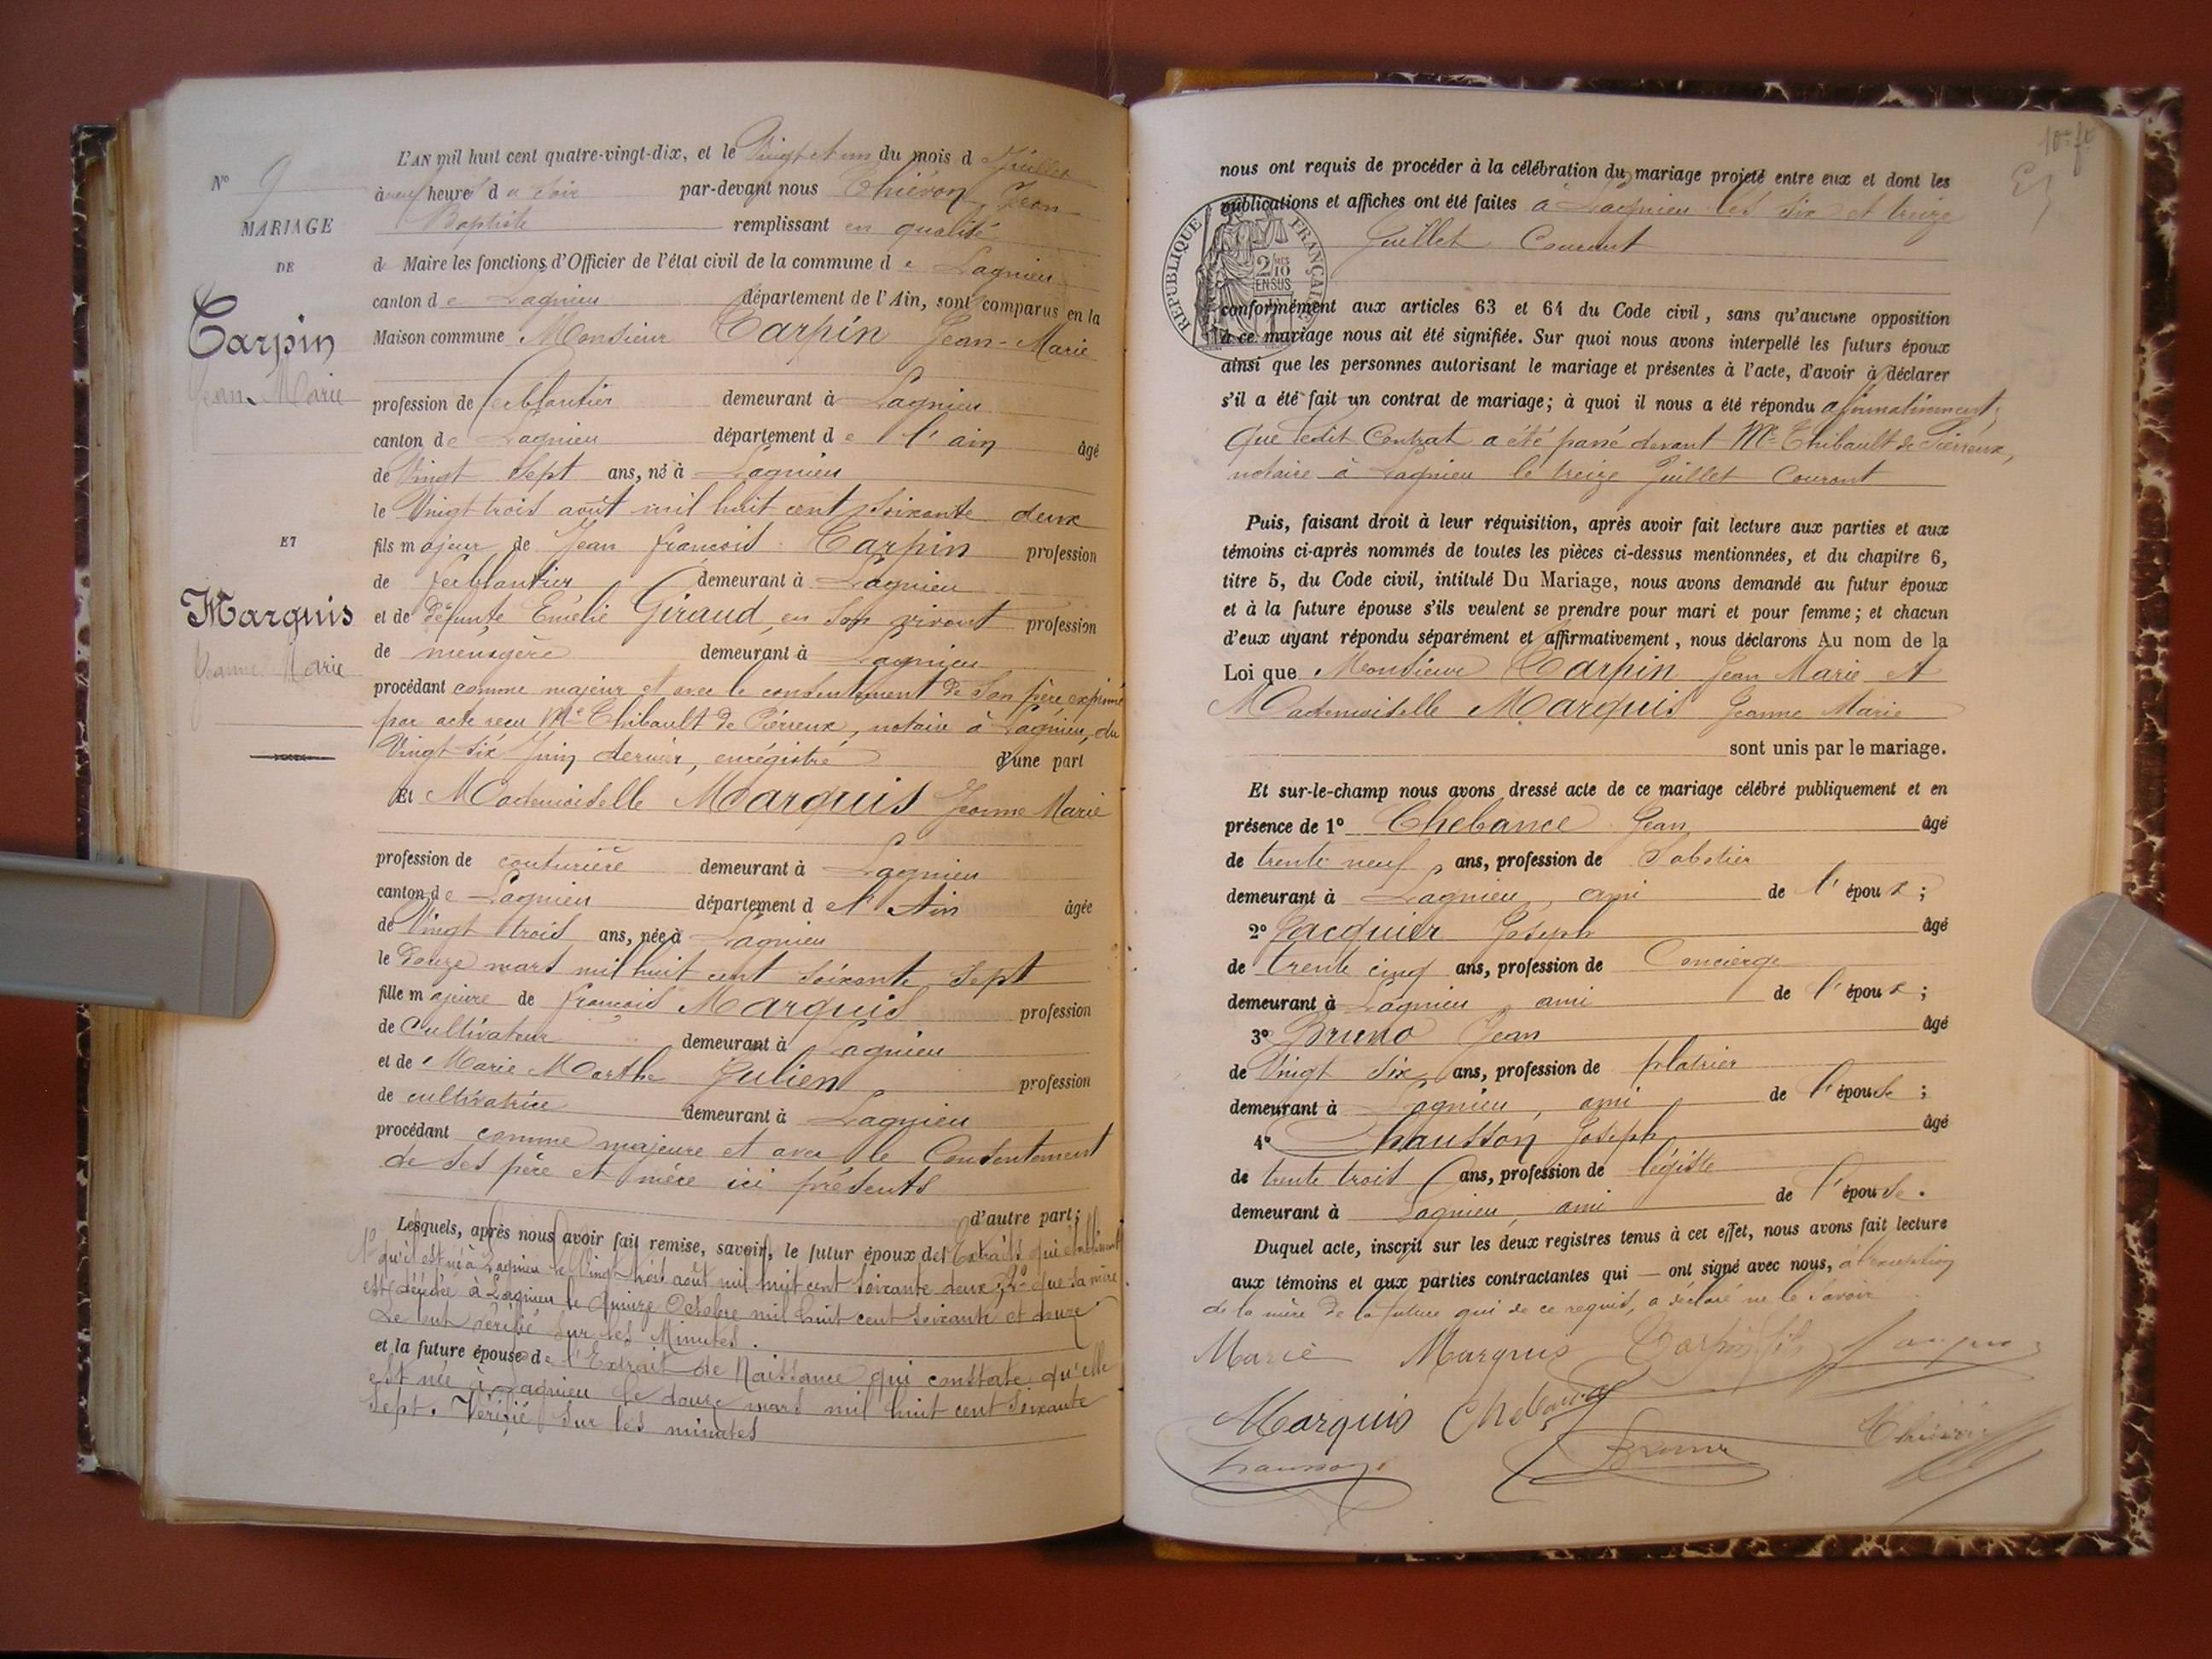 N° 9
MARIAGE
DE
Carpin
Jean Marie
ET
Marquis
Jeanne Marie
L'AN mil huit cent quatre-vingt-dix, et le Vingt et un du mois d Juillet
à neuf heures du soir par-devant nous Thiévon, Jean-
Baptiste remplissant en qualité
de Maire les fonctions d'Officier de l'état civil de la commune de Lagnieu
canton de Lagnieu département de l'Ain, sont comparus en la
Maison commune Monsieur Carpin Jean-Marie
profession de ferblantier demeurant à Lagnieu
canton de Lagnieu département de l'ain âgé
de Vingt Sept ans, né à Lagnieu
le Vingt trois août mil huit cent soixante deux
fils majeur de Jean françois Carpin profession
de ferblantier demeurant à Lagnieu
et de défunte Emélie Giraud, en son vivant profession
de ménagère demeurant à Lagnieu
procédant comme majeur et avec le consentement de son père exprimé
par acte recu Me Thibault de Pierreux, notaire à Lagnieu, du
Vingt Six Juin dernier, enrégistré d'une part
Et Mademoiselle Marquis Jeanne Marie
profession de couturière demeurant à Lagnieu
canton de Lagnieu département d el' Ain âgée
de Vingt trois ans, née à Lagnieu
le Douze mars mil huit cent soixante Sept
fille majeure de françois Marquis profession
de Cultivateur demeurant à Lagnieu
et de Marie Marthe Julien profession
de cultivatrice demeurant à Lagnieu
procédant comme majeure et avec le Consentement
de ses père et mère ici présents
d'autre part;
Lesquels, après nous avoir fait remise, savoir, le futur époux des Extraits qui établissent
1° qu'il est né à Lagnieu le Vingt trois août mil huit cent soixante deux; 2° que sa mère
est décédée à Lagnieu le Quinze Octobre mil huit cent soixante et douze
Le tout vérifié sur les Minutes.
et la future épouse de l'Extrait de Naissance qui constate qu'elle
est née à Lagnieu le douze mars mil huit cent soixante
Sept. Vérifié sur les minutes
nous ont requis de procéder à la célébration du mariage projeté entre eux et dont les
publications et affiches ont été faites à Lagnieu les six et treize
Juillet Courant
REPUBLIQUE FRANÇAISE
2/10 EN SUS
conformément aux articles 63 et 64 du Code civil, sans qu'aucune opposition
à ce mariage nous ait été signifiée. Sur quoi nous avons interpellé les futurs époux
ainsi que les personnes autorisant le mariage et présentes à l'acte, d'avoir à déclarer
s'il a été fait un contrat de mariage; à quoi il nous a été répondu afirmativement,
Que ledit Contrat a été passé devant Me Thibault de Pierreux,
notaire à Lagnieu le treize Juillet Courant
Puis, faisant droit à leur réquisition, après avoir fait lecture aux parties et aux
témoins ci-après nommés de toutes les pièces ci-dessus mentionnées, et du chapitre 6,
titre 5, du Code civil, intitulé Du Mariage, nous avons demandé au futur époux
et à la future épouse s'ils veulent se prendre pour mari et pour femme; et chacun
d'eux ayant répondu séparément et affirmativement, nous déclarons Au nom de la
Loi que Monsieur Carpin Jean Marie et
Mademoiselle Marquis Jeanne Marie
sont unis par le mariage.
Et sur-le-champ nous avons dressé acte de ce mariage célébré publiquement et en
présence de 1° Chebance Jean âgé
de trente neuf ans, profession de Sabotier
demeurant à Lagnieu, ami de l'époux;
2° Jacquier Joseph âgé
de trente cinq ans, profession de Concierge
demeurant à Lagnieu, ami de l'époux;
3° Bruno Jean âgé
de Vingt Six ans, profession de platrier
demeurant à Lagnieu, ami de l'épouse;
4° Chausson Joseph âgé
de trente trois ans, profession de légiste
demeurant à Lagnieu, ami de l'épouse.
Duquel acte, inscrit sur les deux registres tenus à cet effet, nous avons fait lecture
aux témoins et aux parties contractantes qui — ont signé avec nous, à l'exception
de la mère de la future qui de ce requis, a déclaré ne le savoir
Marie Marquis Carpin fils
Marquis Chebance Thiévon
Chausson Bruno